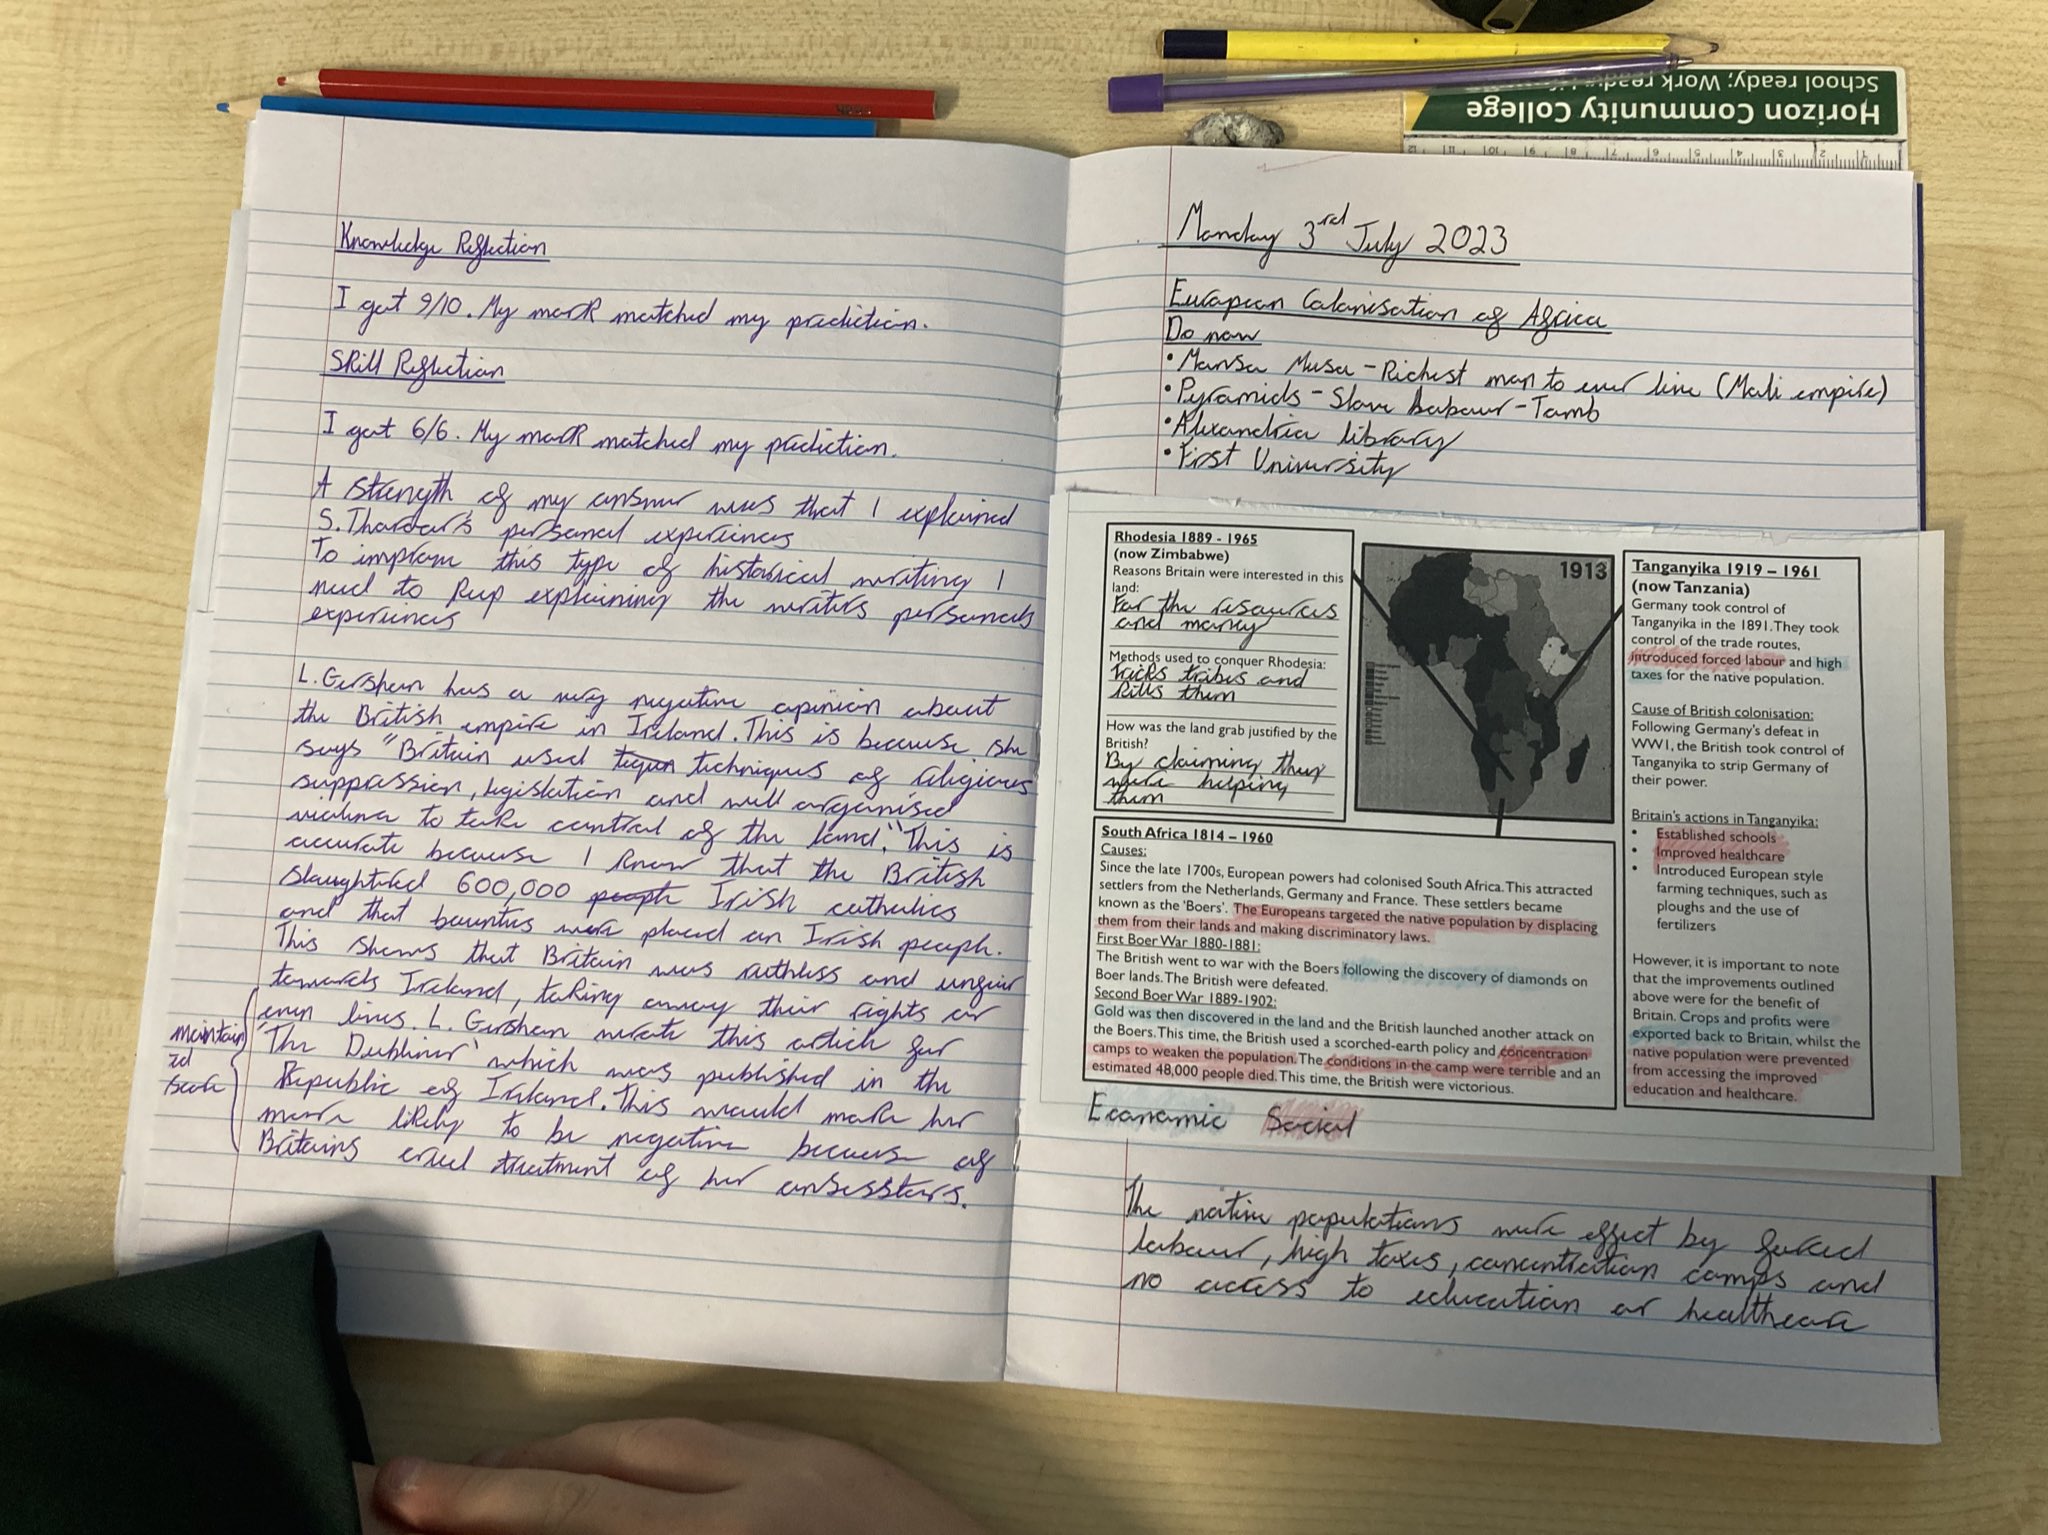 Horizon Community College
School ready; Work ready;
Knowledge Reflection
I got 9/10. My mark matched my prediction.
Skill Reflection
I got 6/6. My mark matched my prediction.
A strength of my answer was that I explained
S. Tharoor's personal experiences
To improve this type of historical writing I
need to keep explaining the writers personals
experiences
L. Gershon has a very negative opinion about
the British empire in Ireland. This is because she
says "Britain used techniques of religious
suppression, legislation and well organised
violence to take control of the land." This is
accurate because I know that the British
slaughtered 600,000 people Irish catholics
and that bounties were placed on Irish people.
This shows that Britain was ruthless and unfair
towards Ireland, taking away their rights or
even lives. L. Gershon wrote this article for
'The Dubliner' which was published in the
Republic of Ireland. This would make her
more likely to be negative because of
Britains cruel treatment of her ansesstors.
maintain
ed
Monday 3rd July 2023
European Colonisation of Africa
Do now
• Mansa Musa - Richest man to ever live (Mali empire)
• Pyramids - Slave labour - Tomb
• Alexandria library
• First University
Rhodesia 1889 - 1965
(now Zimbabwe)
Reasons Britain were interested in this
land:
For the resources
and money
Methods used to conquer Rhodesia:
tricks tribes and
kills them
How was the land grab justified by the
British?
By claiming they
were helping
them
1913
Tanganyika 1919 – 1961
(now Tanzania)
Germany took control of
Tanganyika in the 1891. They took
control of the trade routes,
introduced forced labour and high
taxes for the native population.
Cause of British colonisation:
Following Germany's defeat in
WW1, the British took control of
Tanganyika to strip Germany of
their power.
Britain's actions in Tanganyika:
• Established schools
• Improved healthcare
• Introduced European style
farming techniques, such as
ploughs and the use of
fertilizers
However, it is important to note
that the improvements outlined
above were for the benefit of
Britain. Crops and profits were
exported back to Britain, whilst the
native population were prevented
from accessing the improved
education and healthcare.
South Africa 1814 – 1960
Causes:
Since the late 1700s, European powers had colonised South Africa. This attracted
settlers from the Netherlands, Germany and France. These settlers became
known as the 'Boers'. The Europeans targeted the native population by displacing
them from their lands and making discriminatory laws.
First Boer War 1880-1881:
The British went to war with the Boers following the discovery of diamonds on
Boer lands. The British were defeated.
Second Boer War 1889-1902:
Gold was then discovered in the land and the British launched another attack on
the Boers. This time, the British used a scorched-earth policy and concentration
camps to weaken the population. The conditions in the camp were terrible and an
estimated 48,000 people died. This time, the British were victorious.
Economic Social
The native populations were effect by forced
labour, high taxes, concentration camps and
no access to education or healthcare